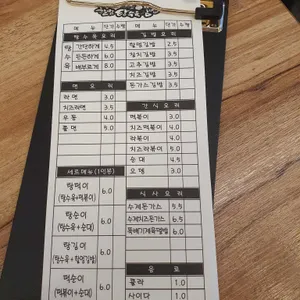 메뉴 단가 수량
탕수육요리
탕 간단하게 4.5
수 든든하게 6.0
육 배부르게 8.0
면요리
라면 3.0
치즈라면 3.5
우동 4.0
쫄면 5.0
세트메뉴 (1인분)
탕떡이
(탕수육+떡볶이) 6.0
탕순이
(탕수육+순대) 6.0
탕김이
(탕수육+참맛김밥) 6.0
떡순이
(떡볶이+순대) 6.0
메뉴 단가 수량
김밥요리
참맛김밥 2.5
참치김밥 3.5
고추김밥 3.5
치즈김밥 3.5
돈가스김밥 3.5
간식요리
떡볶이 3.0
치즈떡볶이 4.0
라볶이 4.0
치즈라볶이 5.0
순대 4.5
오뎅 3.0
식사요리
수제돈가스 5.5
수제치즈돈가스 6.5
뚝배기제육덮밥 6.0
음료
콜라 1.0
사이다 1.0